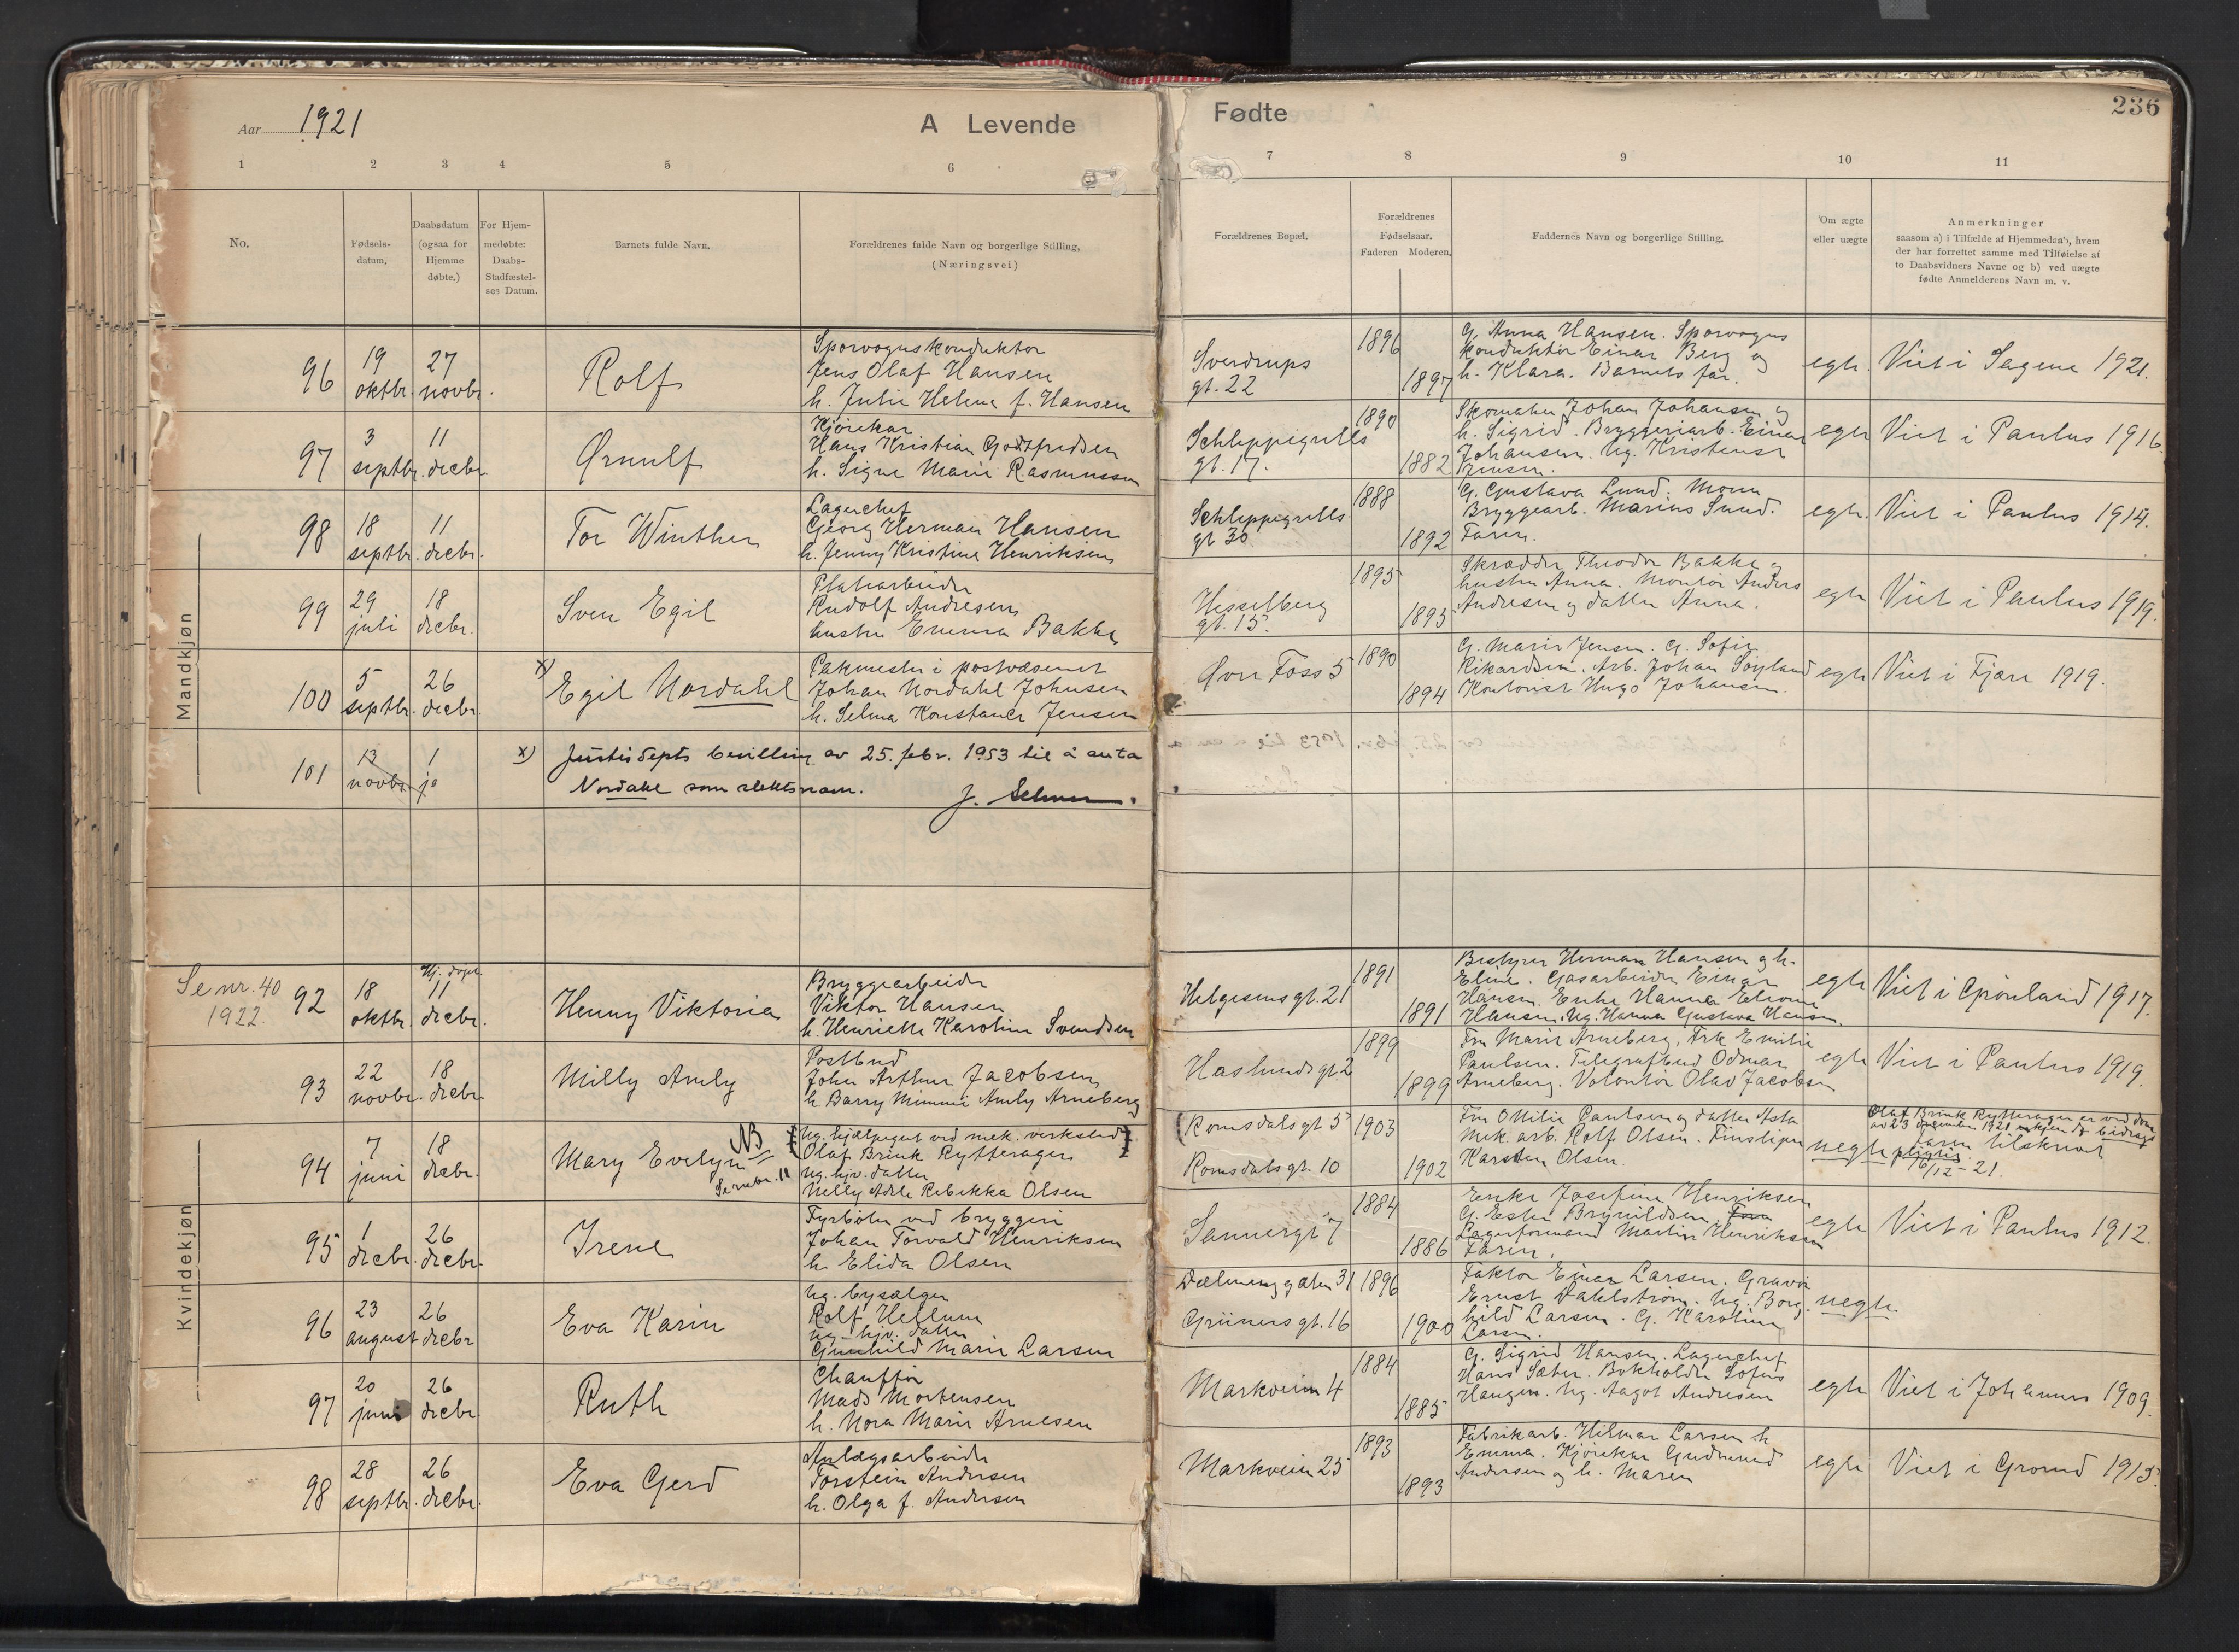 Aar 1921
A Levende
Fødte
236
1 2 3 4 5 6 7 8 9 10 11
No.
Fødsels-
datum.
Daabsdatum
(ogsaa for
Hjemme
døbte.)
For Hjem-
medøbte:
Daabs-
Stadfæstel-
ses Datum.
Barnets fulde Navn.
Forældrenes fulde Navn og borgerlige Stilling,
(Næringsvei)
Forældrenes Bopæl.
Forældrenes
Fødselsaar.
Faderen Moderen.
Faddernes Navn og borgerlige Stilling.
Om ægte
eller uægte
Anmerkninger
saasom a) i Tilfælde af Hjemmedaab, hvem
der har forrettet samme med Tilføielse af
to Daabsvidners Navne og b) ved uægte
fødte Anmelderens Navn m. v.
Mandkjøn
96
19
oktbr.
27
novbr.
Rolf
Sporvognskonduktør
Jens Olaf Hansen
h. Julie Helene f. Hansen
Sverdrups
gt. 22
1896
1897
G. Anna Hansen. Sporvogns
konduktør Einar Berg og
h. Klara. Barnets far.
egte.
Viet i Sagene 1921.
97
3
septbr.
11
decbr.
Ørnulf
Kjørekar
Hans Kristian Godtfredsen
h. Signe Marie Rasmussen
Schleppegrells
gt. 17.
1890
1882
Skomaker Johan Johansen og
h. Sigrid. Bryggeriarb. Einar
Johansen. Ug. Kristense
Jensen.
egte
Viet i Paulus 1916.
98
18
septbr.
11
decbr.
Tor Winther
Lagerchef
Georg Herman Hansen
h. Jenny Kristine Henriksen
Schleppegrells
gt 30
1888
1892
G. Gustava Lund. Moren
Bryggearb. Marius Lund.
Faren.
egte.
Viet i Paulus 1914.
99
29
juli
18
decbr.
Sven Egil
Platearbeider
Rudolf Andresen
hustru Emma Bakke
Hesselberg
gt. 15.
1895
1895
Skrædder Theodor Bakke og
hustru Anna. Montør Anders
Andresen og datter Anna.
egte
Viet i Paulus 1919.
100
5
septbr.
26
decbr.
x)
Egil Nordahl
Pakmester i postvæsenet
Johan Nordahl Johnsen
h. Selma Konstance Jensen
Øvre Foss 5
1890
1894
G. Marie Jensen. G. Sofie
Rikardsen. Arb. Johan Søyland
Kontorist Hugo Johansen.
egte
Viet i Fjære 1919.
101
13
novbr.
1
x) Justisdepts bevilling av 25. febr. 1953 til å anta
Nordahl som slektsnavn. J. Selmer.
Kvindekjøn
Se nr. 40
1922.
92
18
oktbr.
Hj. døpt
11
decbr.
Henny Viktoria
Bryggearbeider
Viktor Hansen
h. Henriette Karoline Svendsen
Helgesens gt. 21
1891
1891
Bestyrer Herman Hansen og h.
Eline. Gasarbeider Einar
Hansen. Enke Hanna Elvine
Hansen. Ug. Hanna Gustava Hansen.
egte
Viet i Grønland 1917.
93
22
novbr.
18
decbr.
Milly Amly
Postbud
John Arthur Jacobsen
h. Barry Mimmi Amly Arneberg
Haslunds gt. 2
1899
1899
Fru Marie Arneberg, Frk Emilie
Paulsen. Telegrafbud Odmar
Arneberg. Volontør Olav Jacobsen
egte
Viet i Paulus 1919.
94
7
juni
18
decbr.
Mary Evelyn
NB
Ug. hjælpegut ved mek. verksted
Olaf Brink Rytterager
Ug. hjv. datter
Nelly Adele Rebekka Olsen
(Romsdals gt 5
Romsdals gt. 10
1903
1902
Fru Ottilie Paulsen og datter Asta
Mek. arb. Rolf Olsen. Finsliper
Karsten Olsen.
uegte
Olaf Brink Rytterager er ved dom
av 23 desember 1921 bidrags
pligtig. Faren tilskrevet
16/12-21.
95
1
decbr.
26
decbr.
Irene
Fyrbøter ved bryggeri
Johan Torvald Henriksen
h. Elida Olsen
Sannergt 7
1884
1886
Enke Josefine Henriksen
G. Ester Brynildsen,
Lagerformand Martin Henriksen
Faren.
egte
Viet i Paulus 1912.
96
23
august
26
decbr
Eva Karin
Ug. bysælger
Rolf Hellum
Ug. hjv. datter
Gunhild Marie Larsen
Dælenenggaten 31
Grüners gt. 16
1896
1900
Faktor Einar Larsen. Gravør
Ernst Dahlstrøm. Ug. Borg-
hild Larsen. G. Karoline
Larsen.
uegte.
97
20
juni
26
decbr.
Ruth
Chauffør
Mads Mortensen
h. Nora Marie Arnesen
Markveien 4
1884
1885
G. Sigrid Hansen. Lagerchef
Hans Sæter. Bokholder Sofus
Haugen. Ug. Aagot Andresen
egte
Viet i Johannes 1909.
98
28
septbr.
26
decbr.
Eva Gerd
Anlægsarbeider
Torstein Andersen
h. Olga f. Andersen
Markveien 25
1893
1893
Fabrikarb. Hilmar Larsen h.
Emma. Kjørekar Gudmund
Andersen og h. Maren
egte
Viet i Grorud 1915.